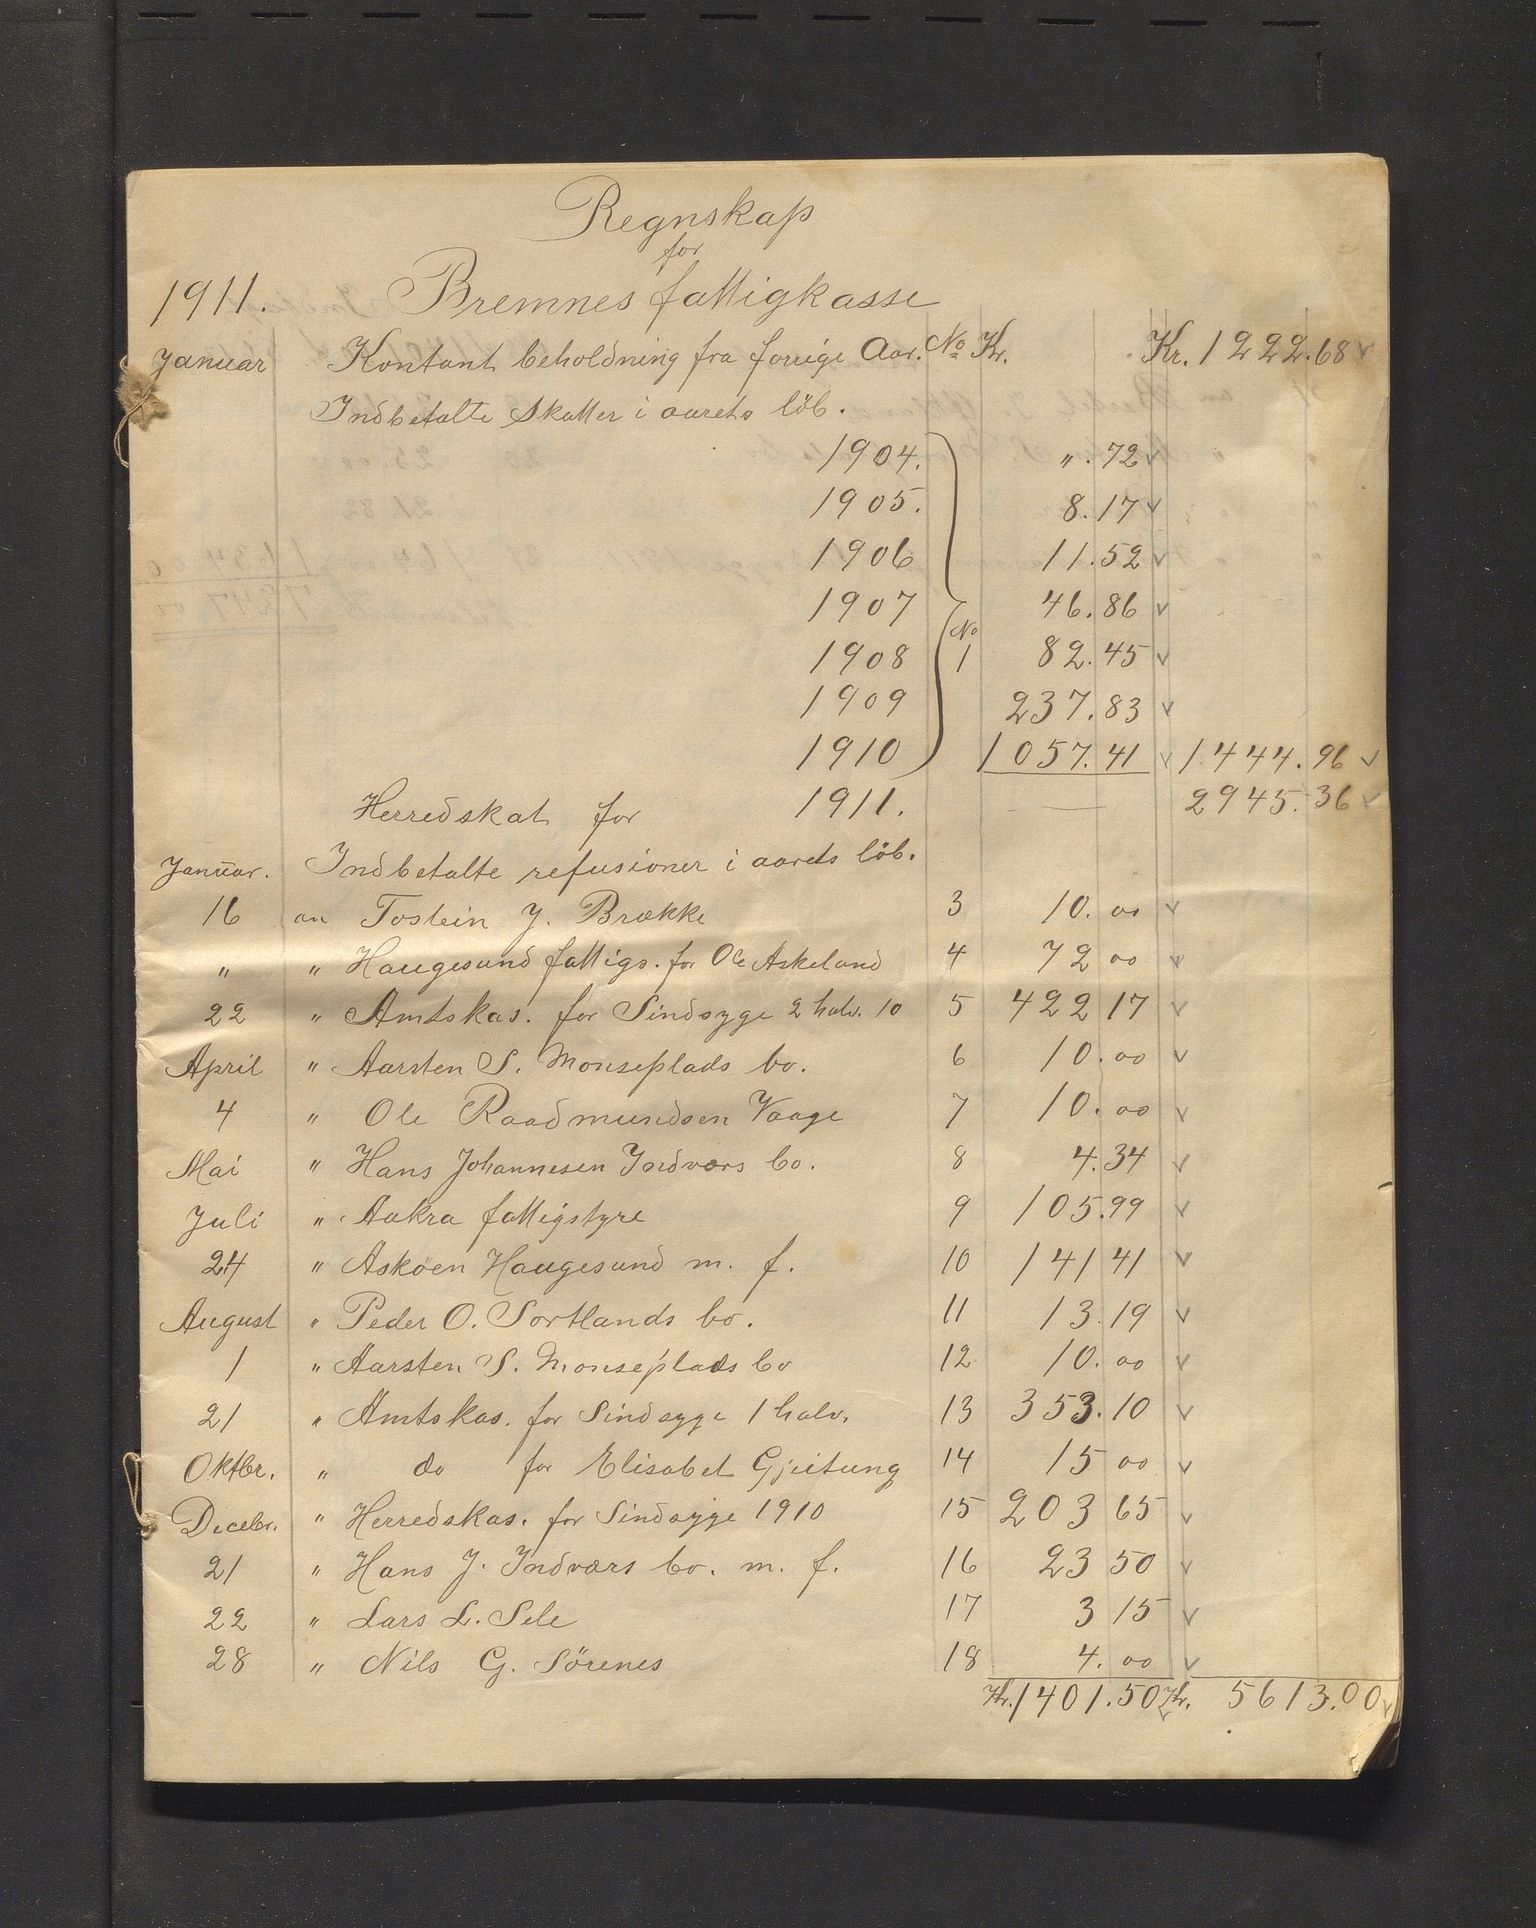 Regnskap
for
1911. Bremnes fattigkasse
Januar Kontant beholdning fra forrige Aar. No Kr. Kr. 1222.68
Indbetalte skatter i aarets löb.
1904. ". 72
1905. 8.17
1906 11.52
1907 46.86
1908 No 1 82.45
1909 237.83
1910 1057.41 1444.96
Herredskat for 1911. 2945.36
Januar. Indbetalte refusioner i aarets löb.
16 an Tostein J. Brække 3 10.00
" " Haugesund fattigs. for Ole Askeland 4 72 00
22 " Amtskas. for Sindsyge 2 halv. 10 5 422 17
April " Aarsten S. Monseplads bo. 6 10.00
4 " Ole Raadmundsen Vaage 7 10.00
Mai " Hans Johannesen Indværs bo. 8 4.34
Juli " Aakra fattigstyre 9 105.99
24 " Askøen Haugesund m. f. 10 141 41
August " Peder O. Sortlands bo. 11 13.19
1 " Aarsten S. Monseplads bo 12 10.00
21 " Amtskas. for Sindsyge 1 halv. 13 353.10
Oktbr. " do for Elisabet Gjeitung 14 15 00
Decebr. " Herredskas. for Sindsyge 1910 15 203 65
21 " Hans J. Indværs bo. m. f. 16 23 50
22 " Lars L. Sele 17 3 15
28 " Nils G. Sörenes 18 4.00
Kr. 1401.50 Kr. 5613.00